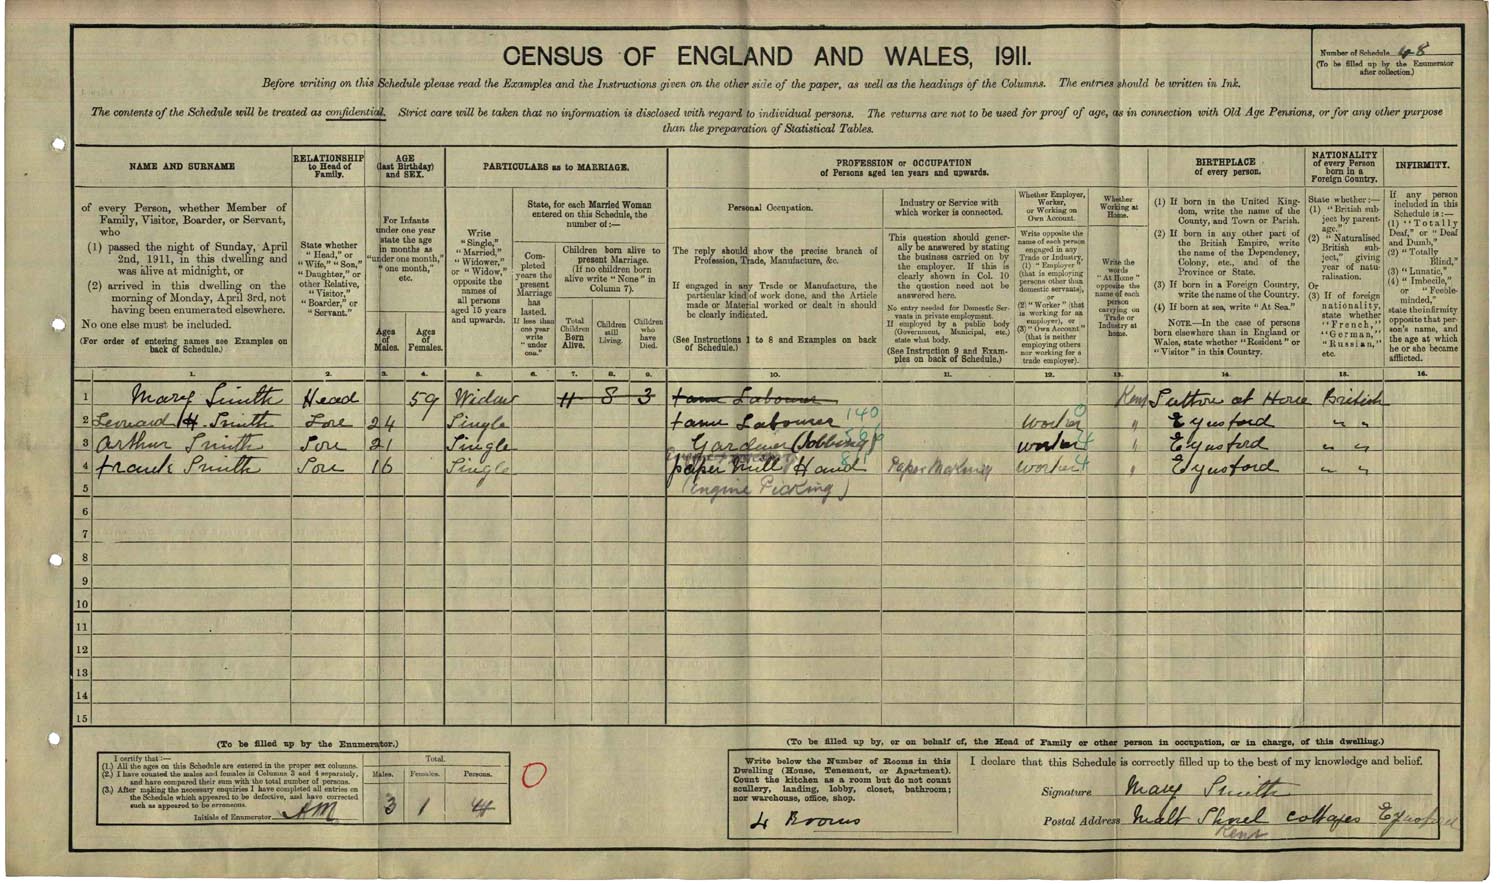 CENSUS OF ENGLAND AND WALES, 1911.
Number of Schedule 48
(To be filled up by the Enumerator
after collection.)
Before writing on this Schedule please read the Examples and the Instructions given on the other side of the paper, as well as the headings of the Columns. The entries should be written in Ink.
The contents of the Schedule will be treated as confidential. Strict care will be taken that no information is disclosed with regard to individual persons. The returns are not to be used for proof of age, as in connection with Old Age Pensions, or for any other purpose
than the preparation of Statistical Tables.
NAME AND SURNAME
of every Person, whether Member of
Family, Visitor, Boarder, or Servant,
who
(1) passed the night of Sunday, April
2nd, 1911, in this dwelling and
was alive at midnight, or
(2) arrived in this dwelling on the
morning of Monday, April 3rd, not
having been enumerated elsewhere.
No one else must be included.
(For order of entering names see Examples on
back of Schedule.)
RELATIONSHIP
to Head of
Family.
State whether
"Head," or
"Wife," "Son,"
"Daughter," or
other Relative,
"Visitor,"
"Boarder," or
"Servant."
AGE
(last Birthday)
and SEX.
For Infants
under one year
state the age
in months as
"under one month,"
"one month,"
etc.
Ages
of
Males.
Ages
of
Females.
PARTICULARS as to MARRIAGE.
Write
"Single,"
"Married,"
"Widower,"
or "Widow,"
opposite the
names of
all persons
aged 15 years
and upwards.
State, for each Married Woman
entered on this Schedule, the
number of:—
Com-
pleted
years the
present
Marriage
has
lasted.
If less than
one year
write
"under
one."
Children born alive to
present Marriage.
(If no children born
alive write "None" in
Column 7).
Total
Children
Born
Alive.
Children
still
Living.
Children
who
have
Died.
PROFESSION or OCCUPATION
of Persons aged ten years and upwards.
Personal Occupation.
The reply should show the precise branch of
Profession, Trade, Manufacture, &c.
If engaged in any Trade or Manufacture, the
particular kind of work done, and the Article
made or Material worked or dealt in should
be clearly indicated.
(See Instructions 1 to 8 and Examples on back
of Schedule.)
Industry or Service with
which worker is connected.
This question should gener-
ally be answered by stating
the business carried on by
the employer. If this is
clearly shown in Col. 10
the question need not be
answered here.
No entry needed for Domestic Ser-
vants in private employment.
If employed by a public body
(Government, Municipal, etc.)
state what body.
(See Instruction 9 and Exam-
ples on back of Schedule.)
Whether Employer,
Worker,
or Working on
Own Account.
Write opposite the
name of each person
engaged in any
Trade or Industry,
(1) "Employer"
(that is employing
persons other than
domestic servants),
or
(2) "Worker" (that
is working for an
employer), or
(3) "Own Account"
(that is neither
employing others
nor working for a
trade employer).
Whether
Working at
Home.
Write the
words
"At Home"
opposite the
name of each
person
carrying on
Trade or
Industry at
home.
BIRTHPLACE
of every person.
(1) If born in the United King-
dom, write the name of the
County, and Town or Parish.
(2) If born in any other part of
the British Empire, write
the name of the Dependency,
Colony, etc., and of the
Province or State.
(3) If born in a Foreign Country,
write the name of the Country.
(4) If born at sea, write "At Sea."
NOTE.—In the case of persons
born elsewhere than in England or
Wales, state whether "Resident" or
"Visitor" in this Country.
NATIONALITY
of every Person
born in a
Foreign Country.
State whether:—
(1) "British sub-
ject by parent-
age,"
(2) "Naturalised
British sub-
ject," giving
year of natu-
ralisation.
Or
(3) If of foreign
nationality,
state whether
"French,"
"German,"
"Russian,"
etc.
INFIRMITY.
If any person
included in this
Schedule is:—
(1) "Totally
Deaf," or "Deaf
and Dumb,"
(2) "Totally
Blind,"
(3) "Lunatic,"
(4) "Imbecile,"
or "Feeble-
minded,"
state the infirmity
opposite that per-
son's name, and
the age at which
he or she became
afflicted.
1. 2. 3. 4. 5. 6. 7. 8. 9. 10. 11. 12. 13. 14. 15. 16.
1 Mary Smith Head 59 Widow 11 8 3 farm Labourer Kent Sutton at Hone British
2 Leonard H. Smith Son 24 Single farm Labourer 140 Worker 0 " Eynsford " "
3 Arthur Smith Son 21 Single Gardener (Jobbing) worker 4 " Eynsford " "
4 frank Smith Son 16 Single paper Mill Hand Paper Making Worker 4 " Eynsford " "
5 (Engine Picking)
6
7
8
9
10
11
12
13
14
15
(To be filled up by the Enumerator.)
I certify that:—
(1.) All the ages on this Schedule are entered in the proper sex columns.
(2.) I have counted the males and females in Columns 3 and 4 separately,
and have compared their sum with the total number of persons.
(3.) After making the necessary enquiries I have completed all entries on
the Schedule which appeared to be defective, and have corrected
such as appeared to be erroneous.
Initials of Enumerator AM
Total.
Males. Females. Persons.
3 1 4
0
(To be filled up by, or on behalf of, the Head of Family or other person in occupation, or in charge, of this dwelling.)
Write below the Number of Rooms in this
Dwelling (House, Tenement, or Apartment).
Count the kitchen as a room but do not count
scullery, landing, lobby, closet, bathroom;
nor warehouse, office, shop.
4 Rooms
I declare that this Schedule is correctly filled up to the best of my knowledge and belief.
Signature Mary Smith
Postal Address Malt Shovel cottages Eynsford
Kent